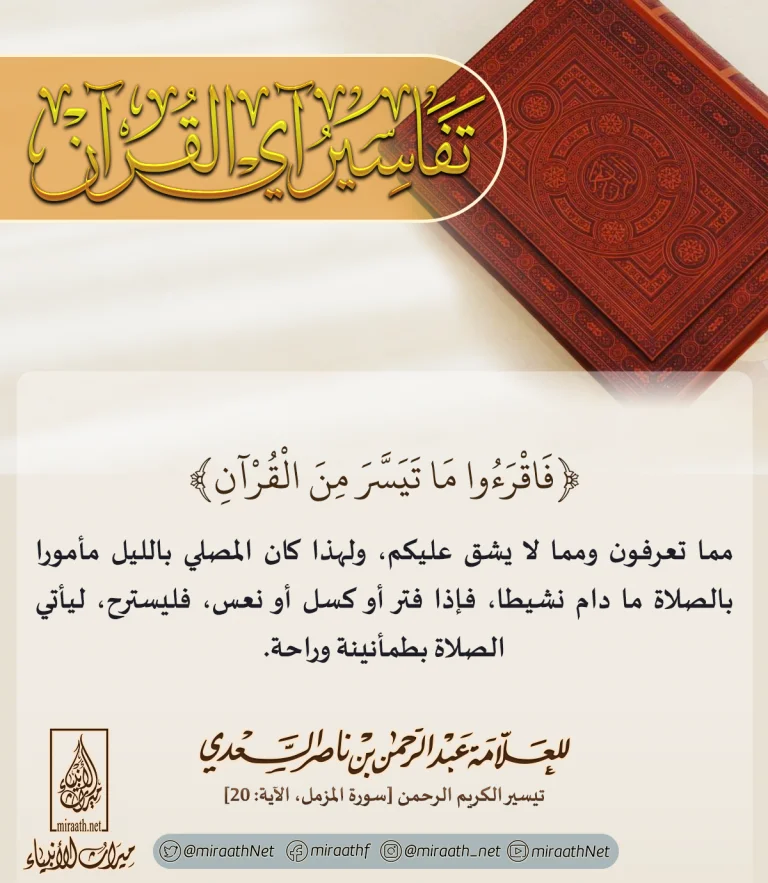 تَفَاسِيرُ آيِ القُرآن
﴿فَاقْرَءُوا مَا تَيَسَّرَ مِنَ الْقُرْآنِ﴾
مما تعرفون ومما لا يشق عليكم، ولهذا كان المصلي بالليل مأمورا
بالصلاة ما دام نشيطا، فإذا فتر أو كسل أو نعس، فليسترح، ليأتي
الصلاة بطمأنينة وراحة.
للعلّامة عبد الرحمن بن ناصر السعدي
تيسير الكريم الرحمن [سورة المزمل، الآية: 20]
ميراث الأنبياء
miraath.net
ميراث الأنبياء
@miraathNet miraathf @miraath_net miraathNet